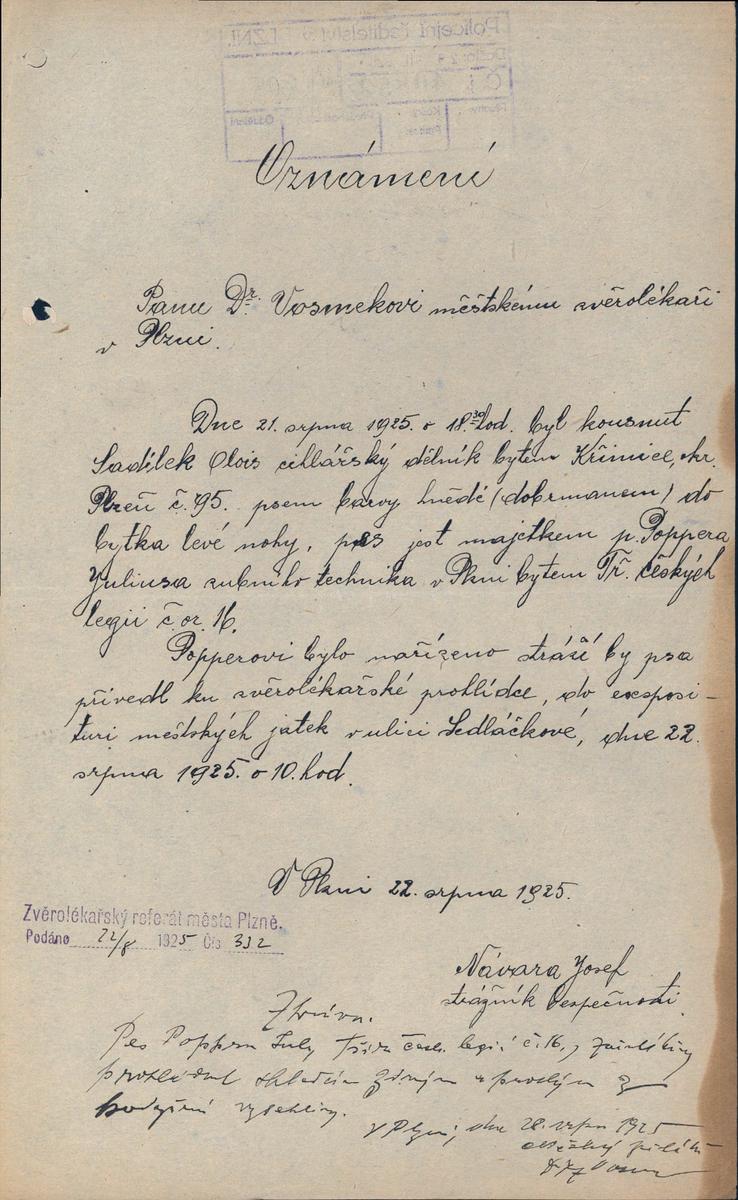 Policejní ředitelství
Oznámení
Panu Dr. Vosmekovi městskému zvěrolékaři
v Plzni.
Dne 21. srpna 1925. o 18.30 hod. byl kousnut
Sadílek Alois cihlářský dělník bytem Křimice, okr.
Plzeň č. 95. psem barvy hnědé (dobrmanem) do
lytka levé nohy, pes jest majetkem p. Poppera
Juliusa zubního technika v Plzni bytem Tř. českých
legií č. or. 16.
Popperovi bylo nařízeno stráží by psa
přivedl ku zvěrolékařské prohlídce, do exposi-
turi městských jatek v ulici Sedláčkové, dne 22.
srpna 1925. o 10. hod.
V Plzni 22. srpna 1925.
Zvěrolékařský referát města Plzně.
Podáno 22/8 1925 Čís 332
Návara Josef
strážník bezpečnosti
Zpráva.
Pes Poppra třída česk. legií č. 16.,
V Plzni, dne 28. srpna 1925